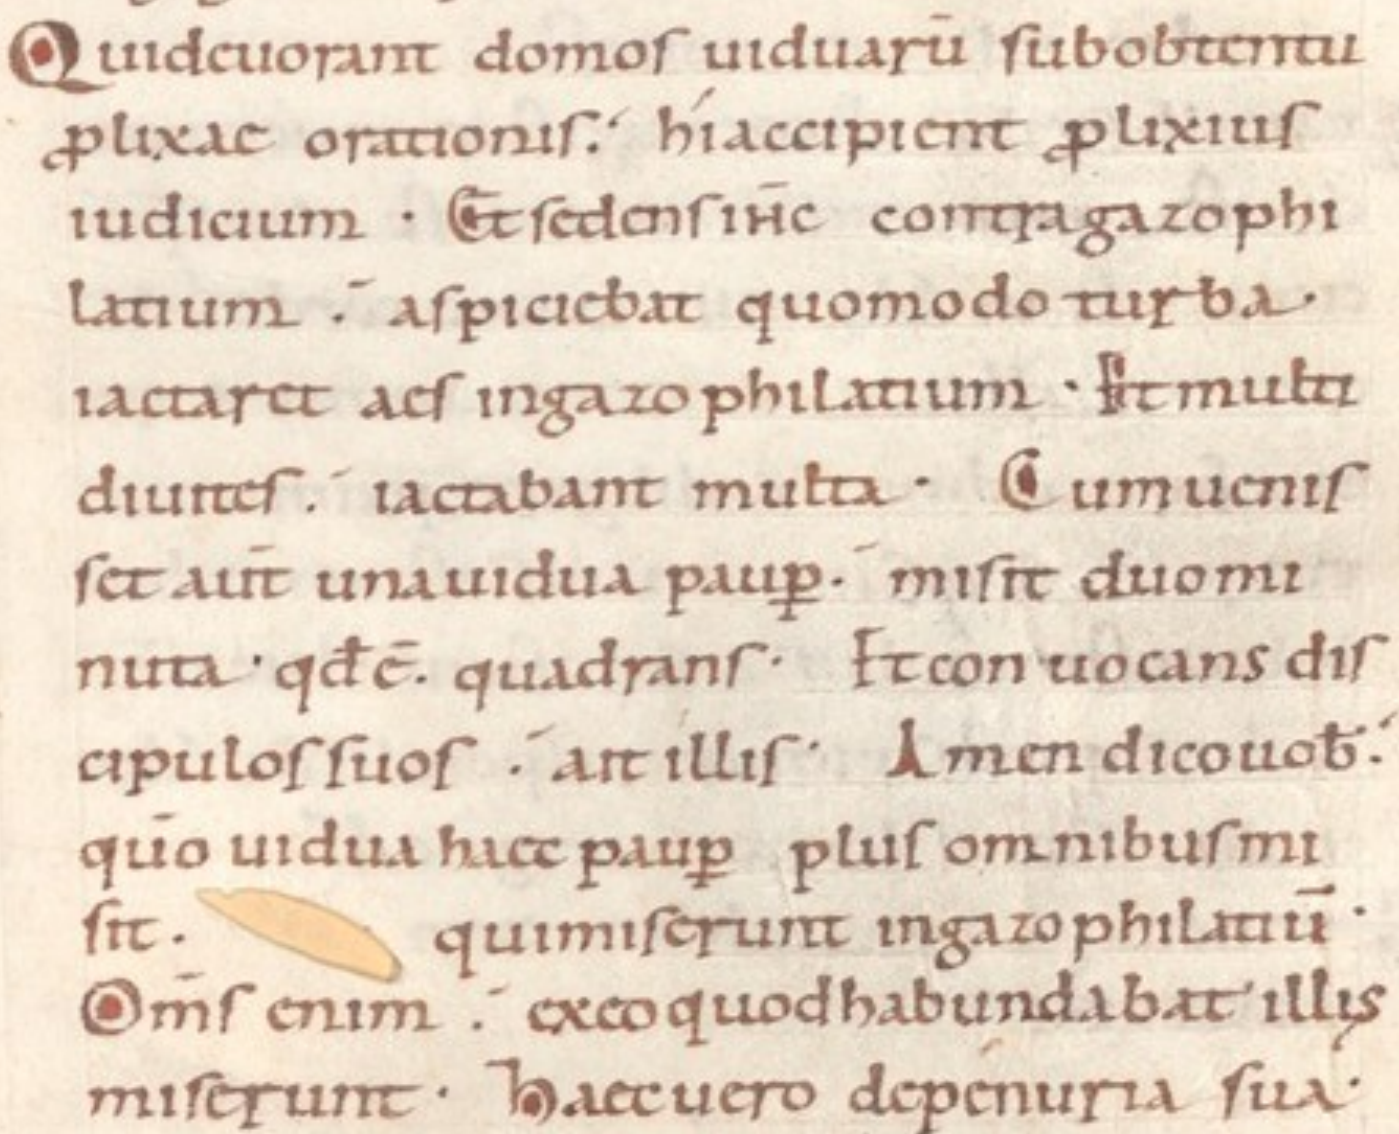 Quideuorant domos uiduarū subobtentu
ꝓlixae orationis. híaccipient ꝓlixius
iudicium · Et sedens ih̄c contragazophi
latium . aspiciebat quomodo turba·
iactaret aes ingazophilatium · Et multi
diuites. iactabant multa · Cum uenis
set aut̄ una uidua paup̲. misit duo mi
nuta · qđ ē. quadrans · Et conuocans dis
cipulos suos . ait illis · Amen dico uob̄.
qūo uidua haec paup̲ plus omnibus mi
sit. qui miserunt ingazophilatiū ·
Om̄s enim . ex eo quod habundabat illis
miserunt · haec uero depénuria sua·